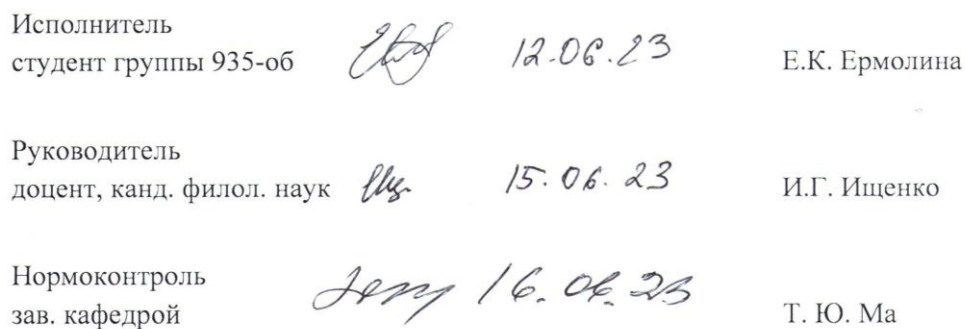 Исполнитель
студент группы 935-об 12.06.23 Е.К. Ермолина
Руководитель
доцент, канд. филол. наук 15.06.23 И.Г. Ищенко
Нормоконтроль
зав. кафедрой 16.06.23 Т. Ю. Ма